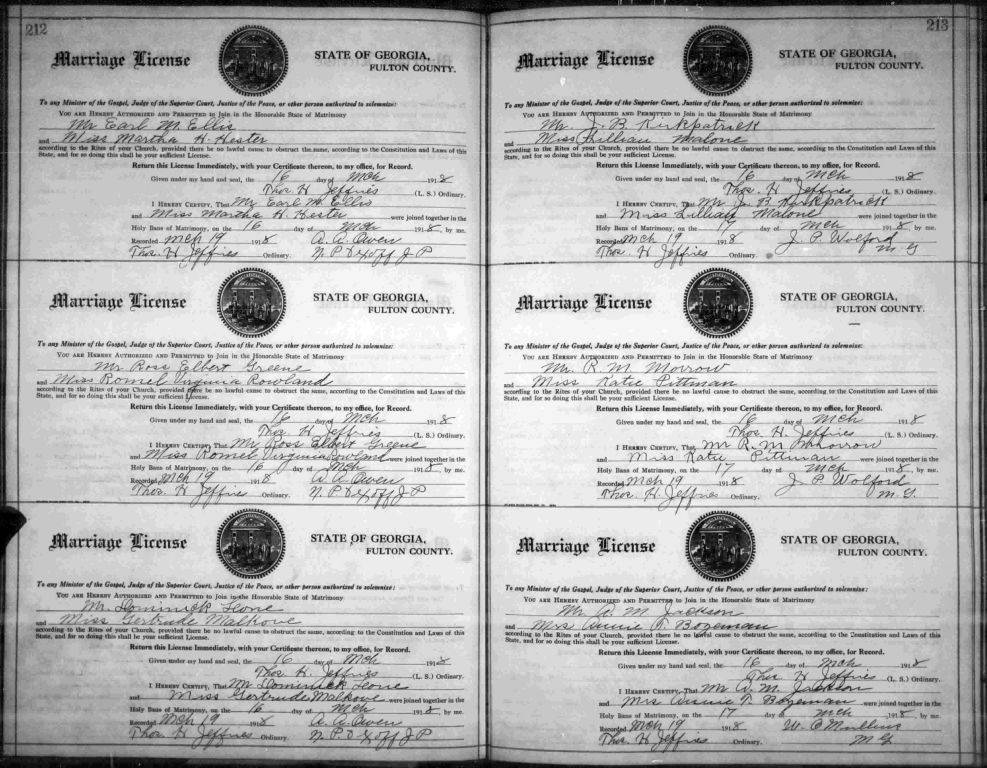 212
Marriage License
STATE OF GEORGIA,
FULTON COUNTY.
To any Minister of the Gospel, Judge of the Superior Court, Justice of the Peace, or other person authorized to solemnize:
YOU ARE HEREBY AUTHORIZED AND PERMITTED to Join in the Honorable State of Matrimony
Mr Earl M. Ellis
and Miss Martha H. Hester
according to the Rites of your Church, provided there be no lawful cause to obstruct the same, according to the Constitution and Laws of this
State, and for so doing this shall be your sufficient License.
Return this License Immediately, with your Certificate thereon, to my office, for Record.
Given under my hand and seal, the 16 day of Mch 1918
Thos. H Jeffries (L. S.) Ordinary.
I HEREBY CERTIFY, That Mr Earl M. Ellis
and Miss Martha H. Hester were joined together in the
Holy Bans of Matrimony, on the 16 day of Mch 1918, by me.
Recorded Mch 19 1918 A. A. Owen
Thos. H Jeffries Ordinary. N. P. & Ex off J P
Marriage License
STATE OF GEORGIA,
FULTON COUNTY.
To any Minister of the Gospel, Judge of the Superior Court, Justice of the Peace, or other person authorized to solemnize:
YOU ARE HEREBY AUTHORIZED AND PERMITTED to Join in the Honorable State of Matrimony
Mr Ross Elbert Greene
and Miss Romel Virginia Rowland
according to the Rites of your Church, provided there be no lawful cause to obstruct the same, according to the Constitution and Laws of this
State, and for so doing this shall be your sufficient License.
Return this License Immediately, with your Certificate thereon, to my office, for Record.
Given under my hand and seal, the 16 day of Mch 1918
Thos H Jeffries (L. S.) Ordinary.
I HEREBY CERTIFY, That Mr Ross Elbert Greene
and Miss Romel Virginia Rowland were joined together in the
Holy Bans of Matrimony, on the 16 day of Mch 1918, by me.
Recorded Mch 19 1918 A. A. Owen
Thos. H Jeffries Ordinary. N. P & Ex off J P
Marriage License
STATE OF GEORGIA,
FULTON COUNTY.
To any Minister of the Gospel, Judge of the Superior Court, Justice of the Peace, or other person authorized to solemnize:
YOU ARE HEREBY AUTHORIZED AND PERMITTED to Join in the Honorable State of Matrimony
Mr. Dominick Leone
and Miss Gertrude Malkove
according to the Rites of your Church, provided there be no lawful cause to obstruct the same, according to the Constitution and Laws of this
State, and for so doing this shall be your sufficient License.
Return this License Immediately, with your Certificate thereon, to my office, for Record.
Given under my hand and seal, the 16 day of Mch 1918
Thos. H. Jeffries (L. S.) Ordinary.
I HEREBY CERTIFY, That Mr Dominick Leone
and Miss Gertrude Malkove were joined together in the
Holy Bans of Matrimony, on the 16 day of Mch 1918, by me.
Recorded Mch 19 1918 A. A. Owen
Thos H Jeffries Ordinary. N. P & Ex off J P
213
Marriage License
STATE OF GEORGIA,
FULTON COUNTY.
To any Minister of the Gospel, Judge of the Superior Court, Justice of the Peace, or other person authorized to solemnize:
YOU ARE HEREBY AUTHORIZED AND PERMITTED to Join in the Honorable State of Matrimony
Mr. J. B. Kirkpatrick
and Miss Lillian Malone
according to the Rites of your Church, provided there be no lawful cause to obstruct the same, according to the Constitution and Laws of this
State, and for so doing this shall be your sufficient License.
Return this License Immediately, with your Certificate thereon, to my office, for Record.
Given under my hand and seal, the 16 day of Mch 1918
Thos. H Jeffries (L. S.) Ordinary.
I HEREBY CERTIFY, That Mr J. B. Kirkpatrick
and Miss Lillian Malone were joined together in the
Holy Bans of Matrimony, on the 17 day of Mch 1918, by me.
Recorded Mch 19 1918 J. P. Wolford
Thos. H Jeffries Ordinary. M G
Marriage License
STATE OF GEORGIA,
FULTON COUNTY.
To any Minister of the Gospel, Judge of the Superior Court, Justice of the Peace, or other person authorized to solemnize:
YOU ARE HEREBY AUTHORIZED AND PERMITTED to Join in the Honorable State of Matrimony
Mr. R. M. Morrow
and Miss Katie Pittman
according to the Rites of your Church, provided there be no lawful cause to obstruct the same, according to the Constitution and Laws of this
State, and for so doing this shall be your sufficient License.
Return this License Immediately, with your Certificate thereon, to my office, for Record.
Given under my hand and seal, the 16 day of Mch 1918
Thos. H. Jeffries (L. S.) Ordinary.
I HEREBY CERTIFY, That Mr R. M Morrow
and Miss Katie Pittman were joined together in the
Holy Bans of Matrimony, on the 17 day of Mch 1918, by me.
Recorded Mch 19 1918 J. P. Wolford
Thos. H. Jeffries Ordinary. M. G.
Marriage License
STATE OF GEORGIA,
FULTON COUNTY.
To any Minister of the Gospel, Judge of the Superior Court, Justice of the Peace, or other person authorized to solemnize:
YOU ARE HEREBY AUTHORIZED AND PERMITTED to Join in the Honorable State of Matrimony
Mr. A. M. Jackson
and Mrs Annie T. Bozeman
according to the Rites of your Church, provided there be no lawful cause to obstruct the same, according to the Constitution and Laws of this
State, and for so doing this shall be your sufficient License.
Return this License Immediately, with your Certificate thereon, to my office, for Record.
Given under my hand and seal, the 16 day of Mch 1918
Thos H Jeffries (L. S.) Ordinary.
I HEREBY CERTIFY, That Mr A. M. Jackson
and Mrs Annie T. Bozeman were joined together in the
Holy Bans of Matrimony, on the 17 day of Mch 1918, by me.
Recorded Mch 19 1918 W. C Mullins
Thos. H. Jeffries Ordinary. M G